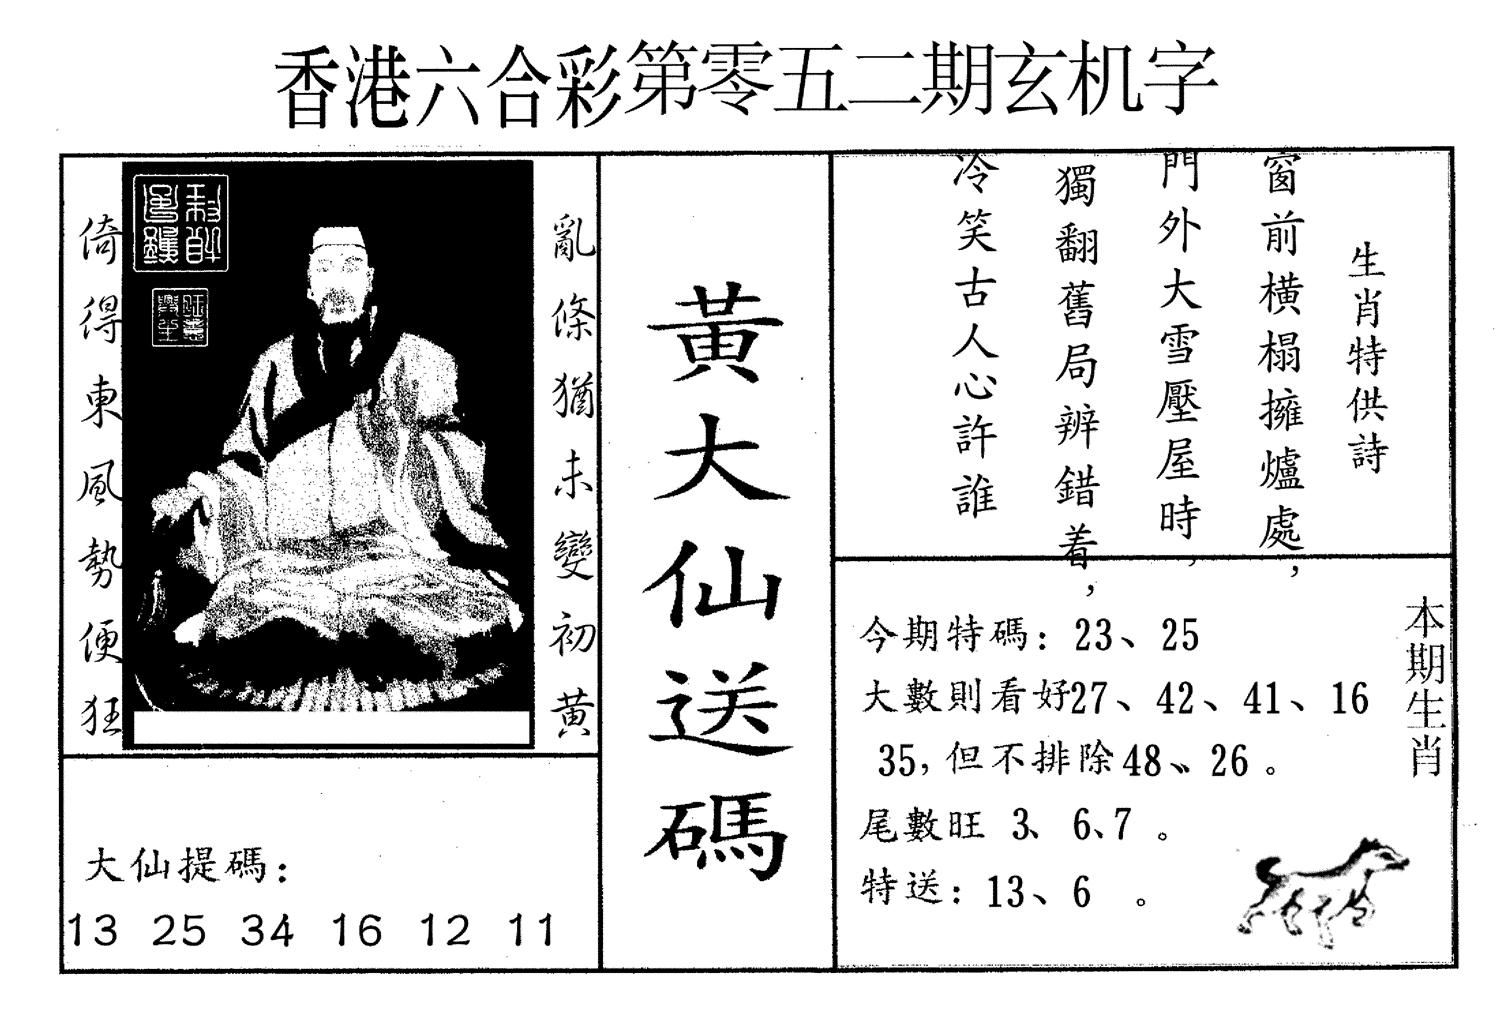 香港六合彩第零五二期玄机字
亂條猶未變初黄
倚得東風勢便狂
黃大仙送碼
生肖特供詩
窗前橫榻擁爐處，
門外大雪壓屋時，
獨翻舊局辨錯着，
冷笑古人心許誰
本期生肖
今期特碼：23、25
大數則看好27、42、41、16
35，但不排除48、26。
尾數旺 3、6、7。
特送：13、6。
大仙提碼：
13 25 34 16 12 11